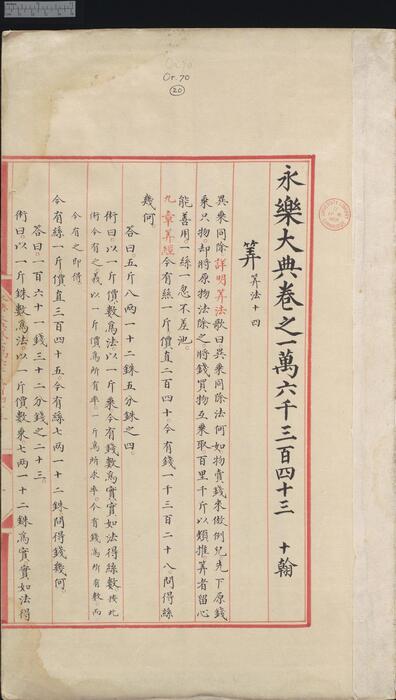 Or.70
Or. 70
20
永樂大典卷之一萬六千三百四十三 十翰
筭 筭法十四
異乘同除詳明筭法歌曰異乘同除法何如物賣錢來做例兒先下原錢
乘只物却將原物法除之將錢買物互乘取百里千斤以類推筭者留心
能善用一絲一忽不差池
九章筭經今有絲一斤價直二百四十今有錢一千三百二十八問得絲
幾何
答曰五斤八兩一十二銖五分銖之四
術曰以一斤價數爲法以一斤乘今有錢數爲實實如法得絲數按此
術今有之義以一斤價爲所有率一斤爲所求率今有錢爲所有數而
今有之即得
今有絲一斤價直三百四十五今有絲七兩一十二銖問得錢幾何
答曰一百六十一錢三十二分錢之二十三
術曰以一斤銖數爲法以一斤價數乘七兩一十二銖爲實實如法得